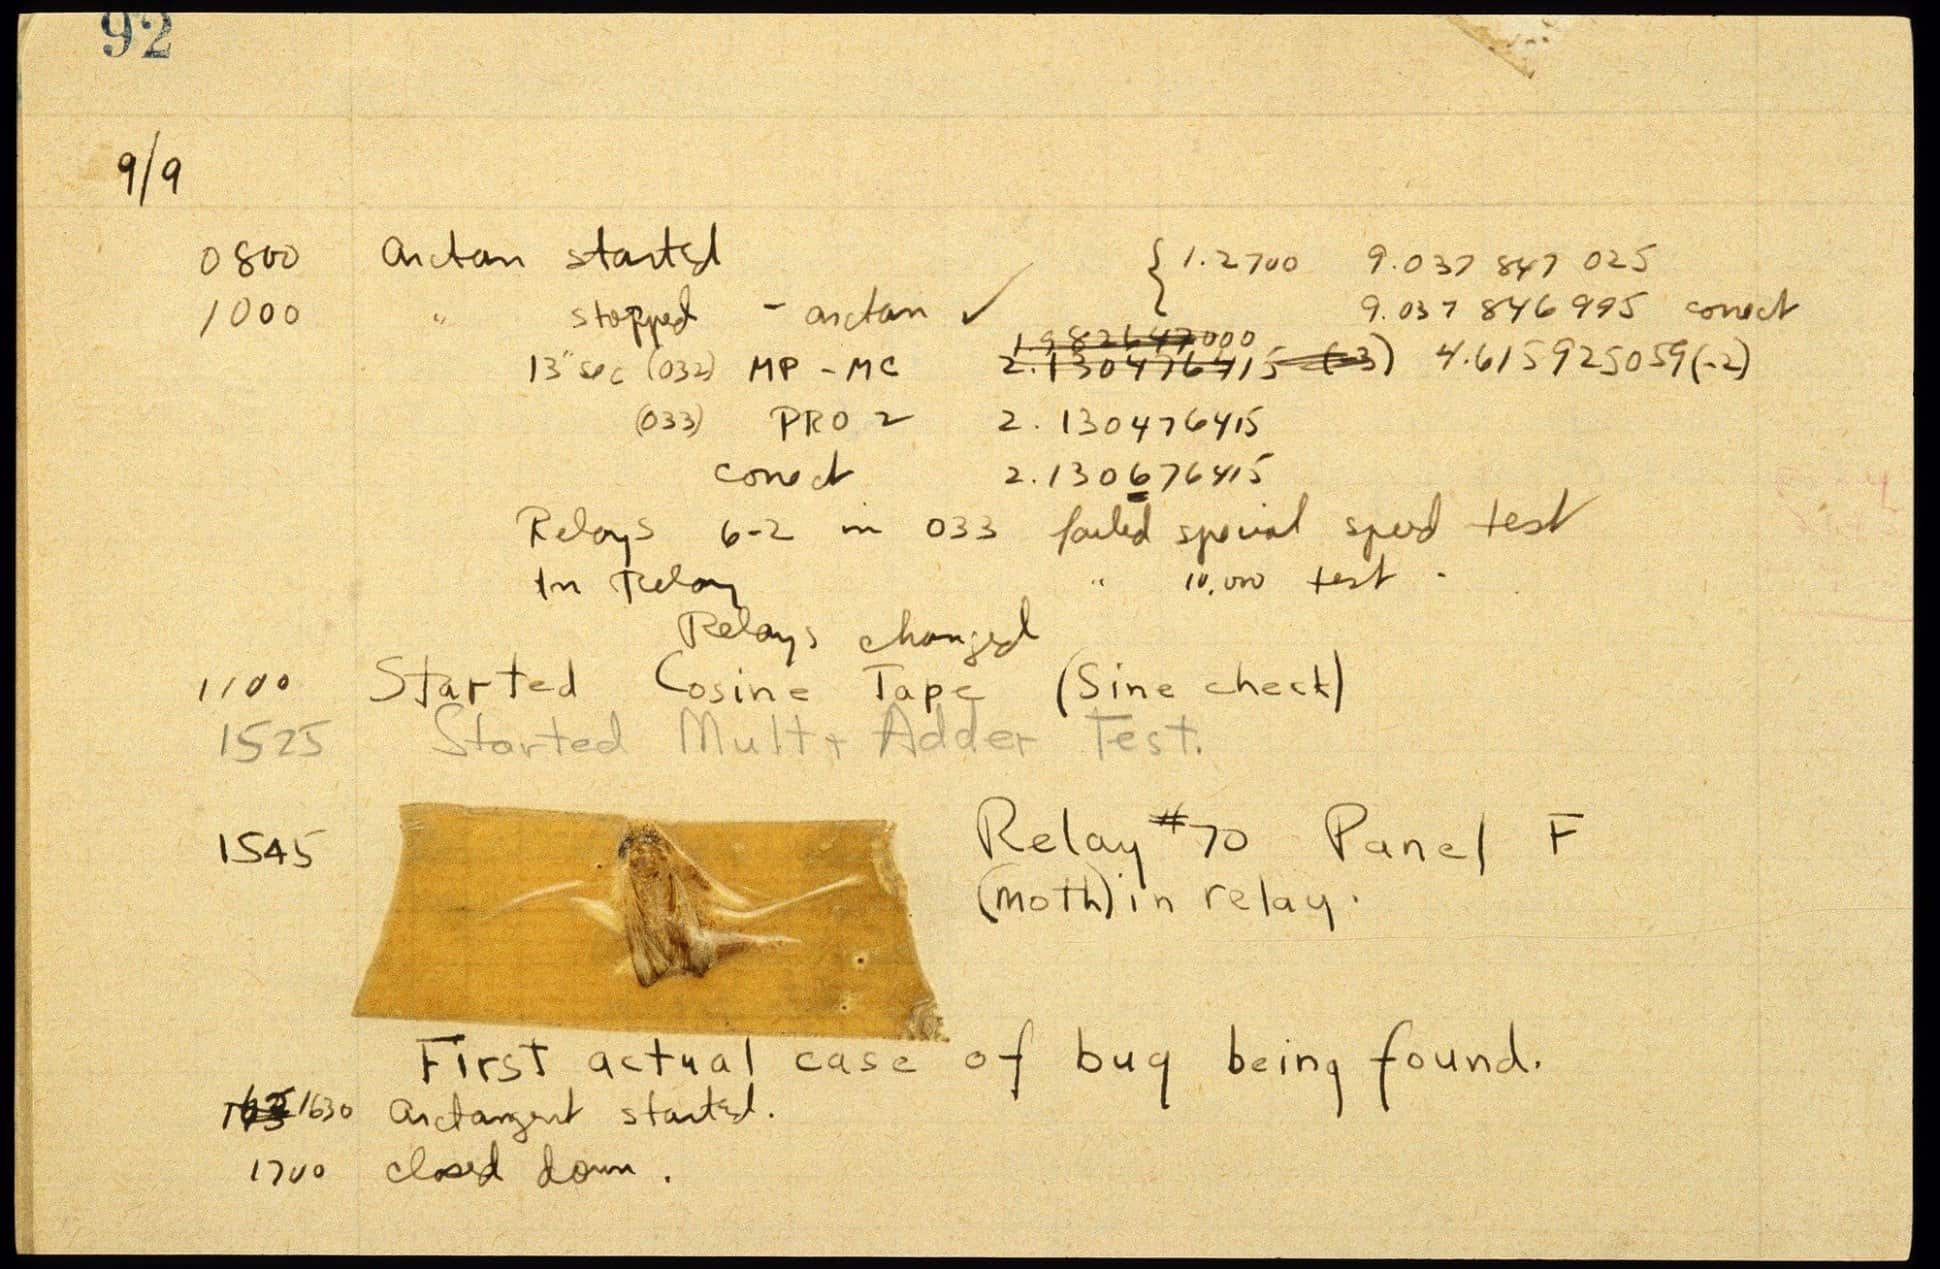 92
9/9
0800 arctan started {1.2700 9.037 847 025
1000 " stopped - arctan ✓ 9.037 846 995 correct
1.982647000
13" sec (032) MP - MC 2.130476415 (-3) 4.615925059(-2)
(033) PRO 2 2.130476415
correct 2.130676415
Relays 6-2 in 033 failed special speed test
In Relay " 10,000 test .
Relays changed
1100 Started Cosine Tape (Sine check)
1525 Started Mult + Adder Test.
1545 Relay #70 Panel F
(moth) in relay.
First actual case of bug being found.
1630 arctangent started.
1700 closed down.